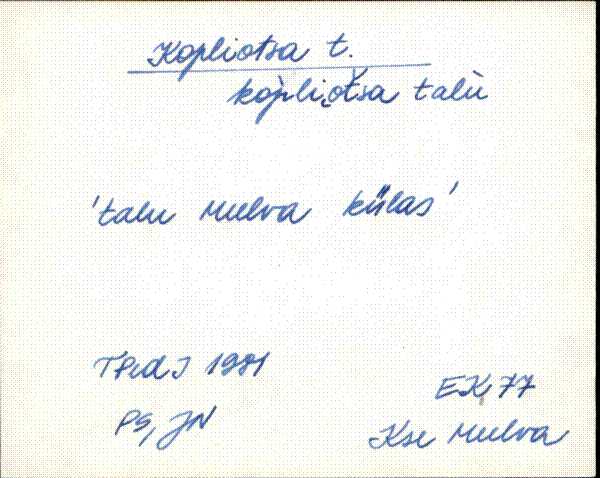 Kopliotsa t.
kòpli̮otsa talù
'talu Mulva külas'
TPedI 1981
PS, JN
EK 77
Kse Mulva